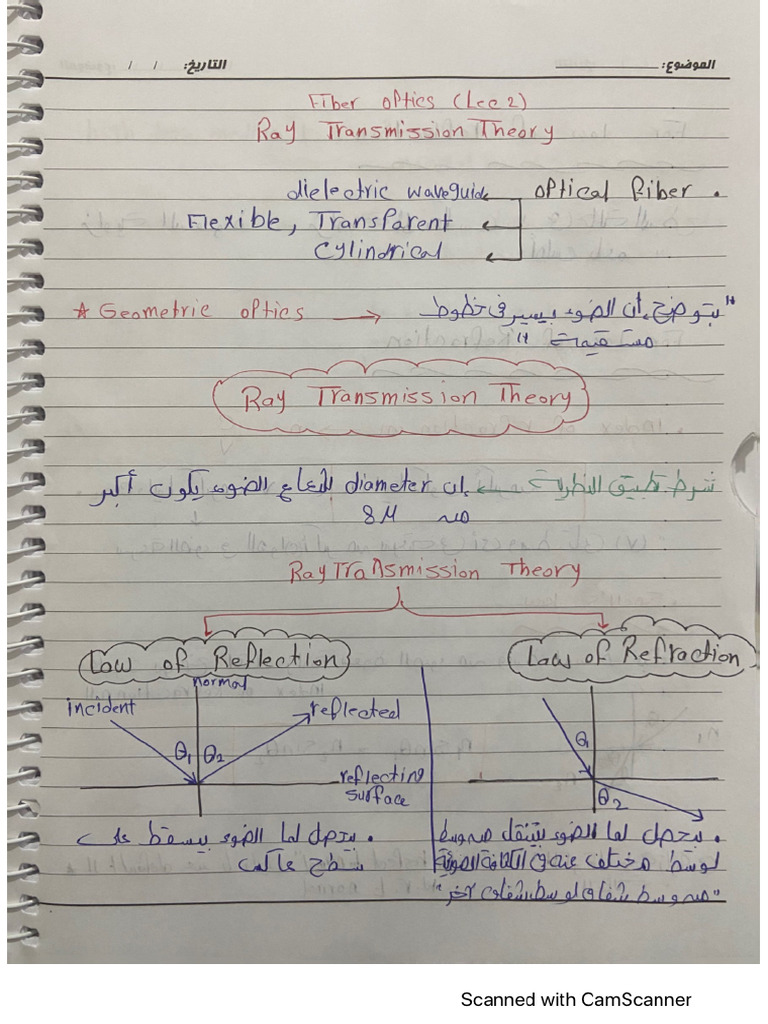 الموضوع: التاريخ: / /
Fiber optics (Lec 2)
Ray Transmission Theory
optical fiber . dielectric waveguide
Flexible, Transparent
Cylindrical
* Geometric optics → "بتوضح ان الضوء بيسير في خطوط
مستقيمة"
Ray Transmission Theory
شرط تطبيق النظرية ← ان diameter لشعاع الضوء يكون أكبر
من 8M
Ray Transmission Theory
Law of Reflection
Law of Refraction
normal
incident
reflected
θ1 θ2
reflecting
surface
θ1
θ2
. يحصل لما الضوء بيسقط على
سطح عاكس
. يحصل لما الضوء يتنقل من وسط
لوسط مختلف عنه في الكثافة الضوئية
"من وسط شفاف لوسط شفاف آخر"
Scanned with CamScanner